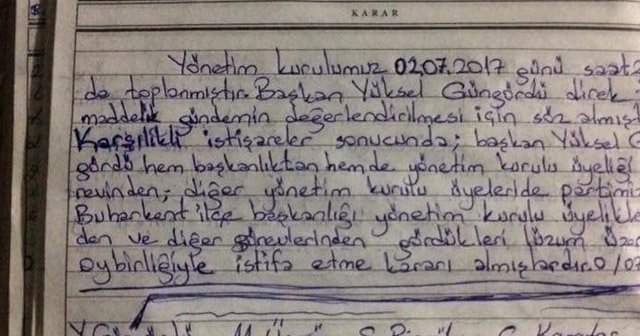 KARAR
Yönetim kurulumuz 02.07.2017 günü saat
da toplanmıştır. Başkan Yüksel Güngördü direk
maddelik gündemin değerlendirilmesi için söz almış
Karşılıklı istişareler sonucunda; başkan Yüksel G
gördü hem başkanlıktan hemde yönetim kurulu üyeliği
revinden, diğer yönetim kurulu üyeleride partimi
Buharkent ilçe başkanlığı yönetim kurulu üyelik
den ve diğer görevlerinden gördükleri lüzum üzer
oybirliğiyle istifa etme kararı almışlardır.